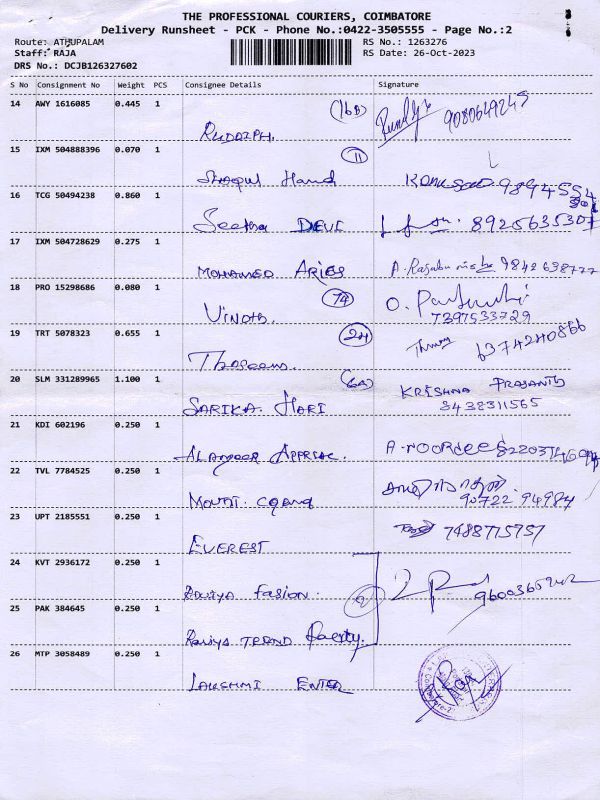 THE PROFESSIONAL COURIERS, COIMBATORE
Delivery Runsheet - PCK - Phone No.:0422-3505555 - Page No.:2
Route: ATHUPALAM RS No.: 1263276
Staff: RAJA RS Date: 26-Oct-2023
DRS No.: DCJB126327602
S No Consignment No Weight PCS Consignee Details Signature
14 AWY 1616085 0.445 1
RUDOLPH. 9080649245
15 IXM 504888396 0.070 1 11
16 TCG 50494238 0.860 1
Seetha DEVI 8925635307
17 IXM 504728629 0.275 1
MOHAMED ARIES 9842638777
18 PRO 15298686 0.080 1 74
VINOTH. 7397533729
19 TRT 5078323 0.655 1 24
6374240866
20 SLM 331289965 1.100 1
SARIKA. HARI KRISHNA PRASANTH
8438311565
21 KDI 602196 0.250 1
22 TVL 7784525 0.250 1
MOUNT. 90722 94984
23 UPT 2185551 0.250 1
EVEREST 7488775757
24 KVT 2936172 0.250 1
Raviya Fasion. 2 9600365242
25 PAK 384645 0.250 1
Raviya TREND
26 MTP 3058489 0.250 1
LAKSHMI ENTER